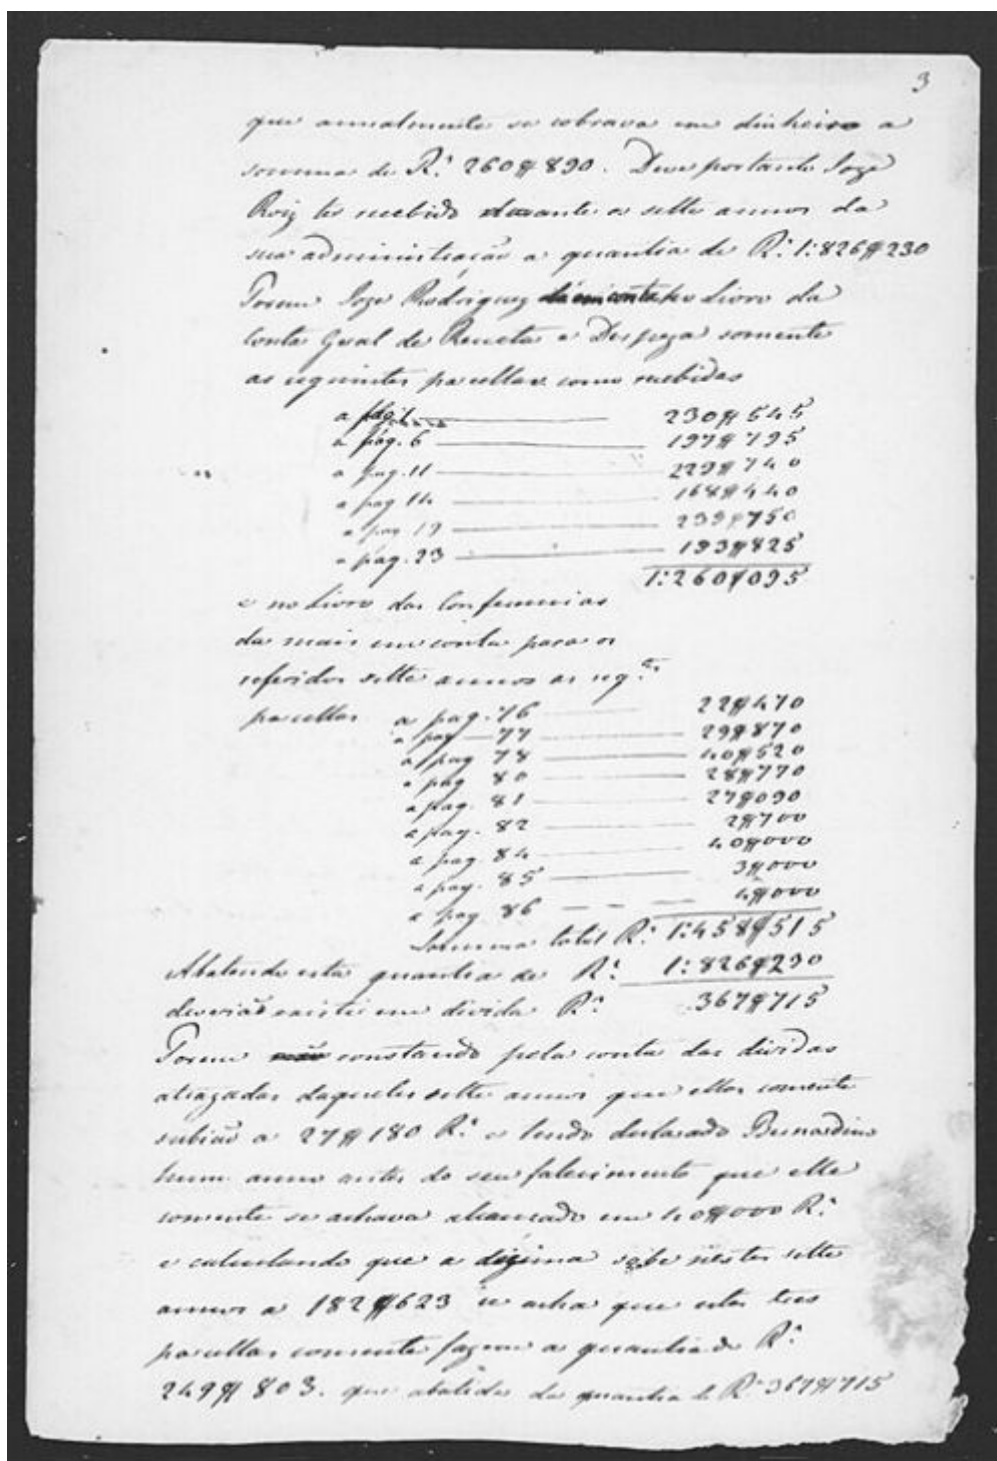 3
que annualmente se cobrava em dinheiro a
somma de R.ˢ 260$890. Deve portanto Joze
Roiz ter recebido durante os sette annos da
sua administração a quantia de R.ˢ 1:826$230
Porem Joze Rodriguez no Livro da
Conta Geral de Receita e Despeza somente
as seguintes parcellas como recebidas
a pag. 1 230$545
a pág. 6 197$795
a pag. 11 229$740
a pag 14 168$440
a pag 19 239$750
a pag. 23 193$825
1:260$095
e no Livro das Conferencias
da mais em conta para os
referidos sette annos as seg.ᵗᵉˢ
parcellas a pag. 76 22$470
a pag 77 29$870
a pag 78 40$520
a pag 80 28$770
a pag. 81 27$090
a pag. 82 2$700
a pag. 84 40$000
a pag. 85 3$000
a pag 86 4$000
Somma total R.ˢ 1:458$515
Abatendo esta quantia de R.ˢ 1:826$230
deverião existir em divida R.ˢ 367$715
Porem não constando pela conta das dividas
atrazadas daquelles sette annos que ellas somente
subião a 27$180 R.ˢ e tendo declarado Bernardino
hum anno antes do seu falecimento que elle
somente se achava alcançado em 40$000 R.ˢ
e calculando que a dizima sobe nestes sette
annos a 182$623 se acha que estas tres
parcellas somente fazem a quantia de R.ˢ
249$803. que abatida da quantia de R.ˢ 367$715